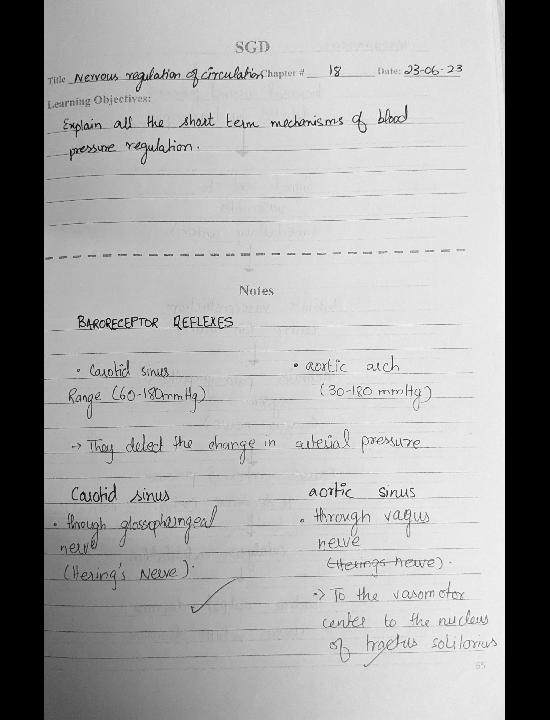 SGD
Title Nervous regulation of circulation Chapter # 18 Date: 23-06-23
Learning Objectives:
Explain all the short term mechanisms of blood
pressure regulation.
Notes
BARORECEPTOR REFLEXES
• Carotid sinus • aortic arch
Range (60-180mmHg) (30-180 mmHg)
→ They detect the change in arterial pressure
Carotid sinus aortic sinus
• through glossopharyngeal • through vagus
nerve nerve
(Hering's Nerve). (Herings nerve).
→ To the vasomotor
center to the nucleus
of tractus solitarius
65